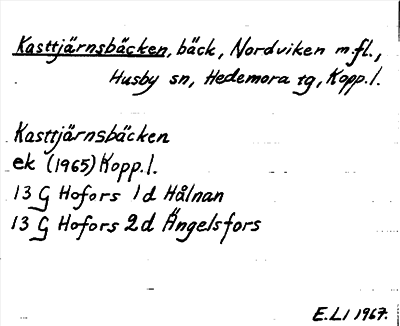 Kasttjärnsbäcken, bäck, Nordviken m.fl.,
Husby sn, Hedemora tg, Kopp.l.
Kasttjärnsbäcken
ek (1965) Kopp.l.
13 G Hofors 1d Hålnan
13 G Hofors 2d Ängelsfors
E.LI 1967.